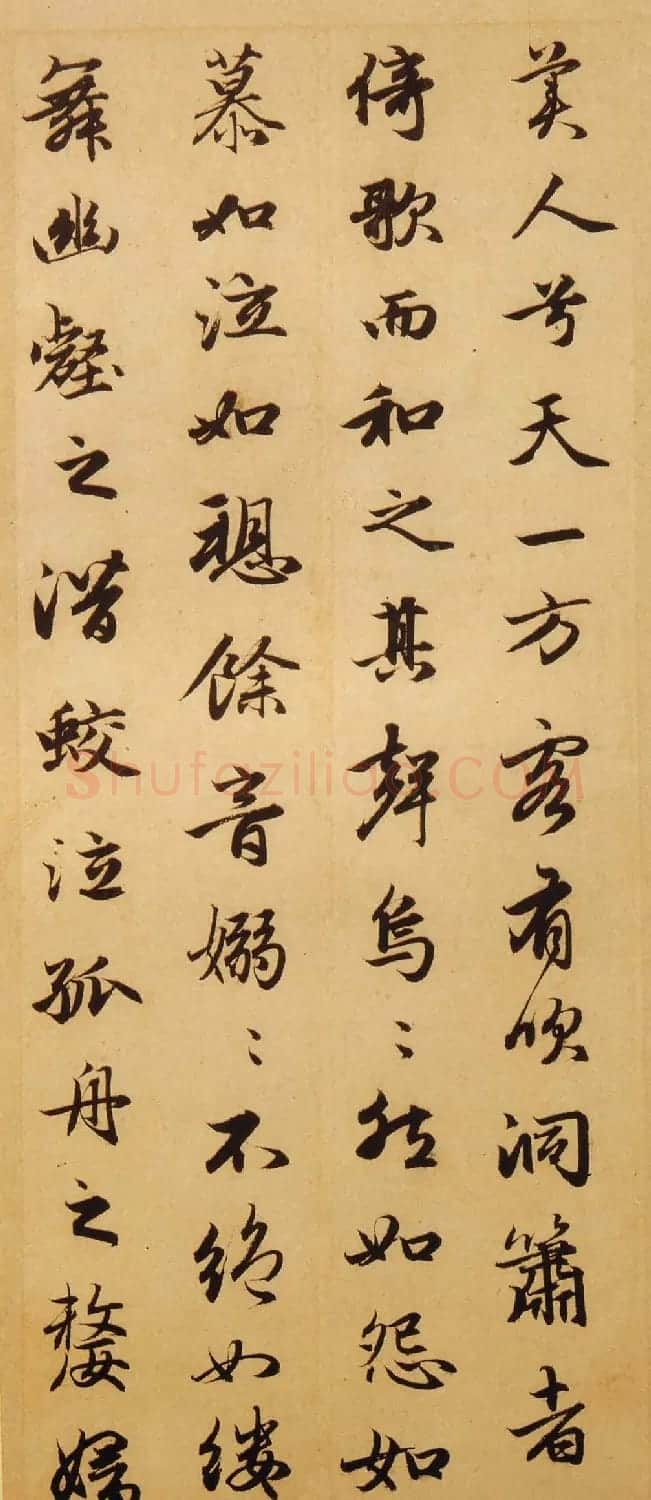 美人兮天一方客有吹洞簫者
倚歌而和之其聲烏〻然如怨如
慕如泣如愬餘音嫋〻不絕如縷
舞幽壑之潛蛟泣孤舟之嫠婦
Shufazilian.COM